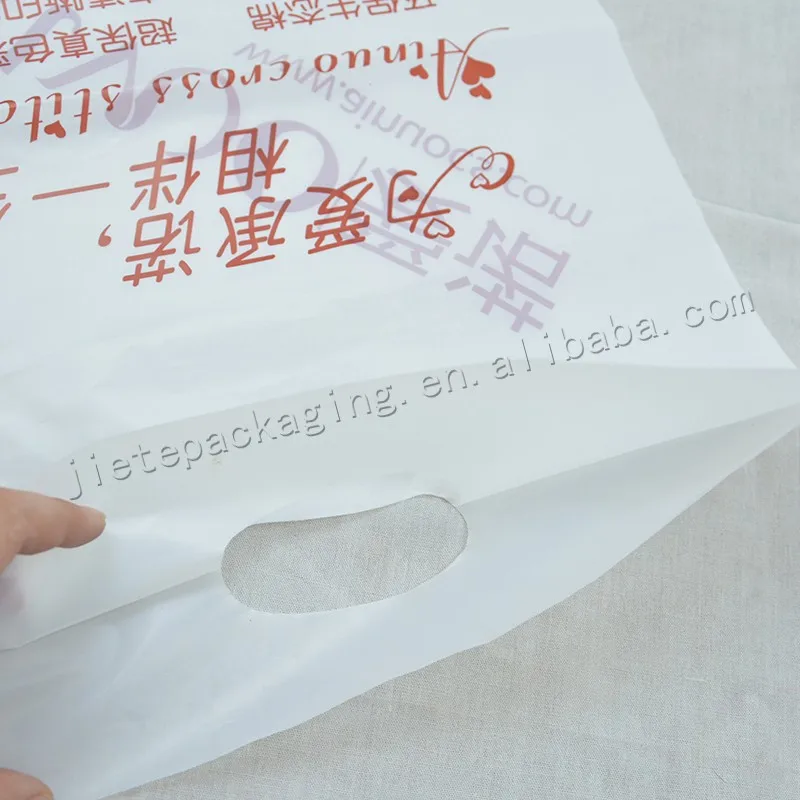 jietepackaging.en.alibaba.com
为爱承诺,
相伴一
Ainuo cross stitc
超保真色
环保生态棉
www.ainuocs.com